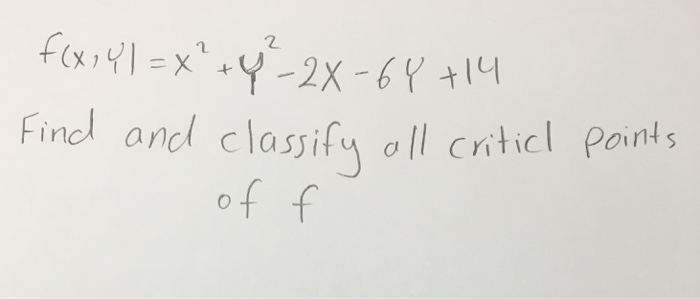 f(x,y)=x²+y²-2x-6y+14
Find and classify all criticl points
of f